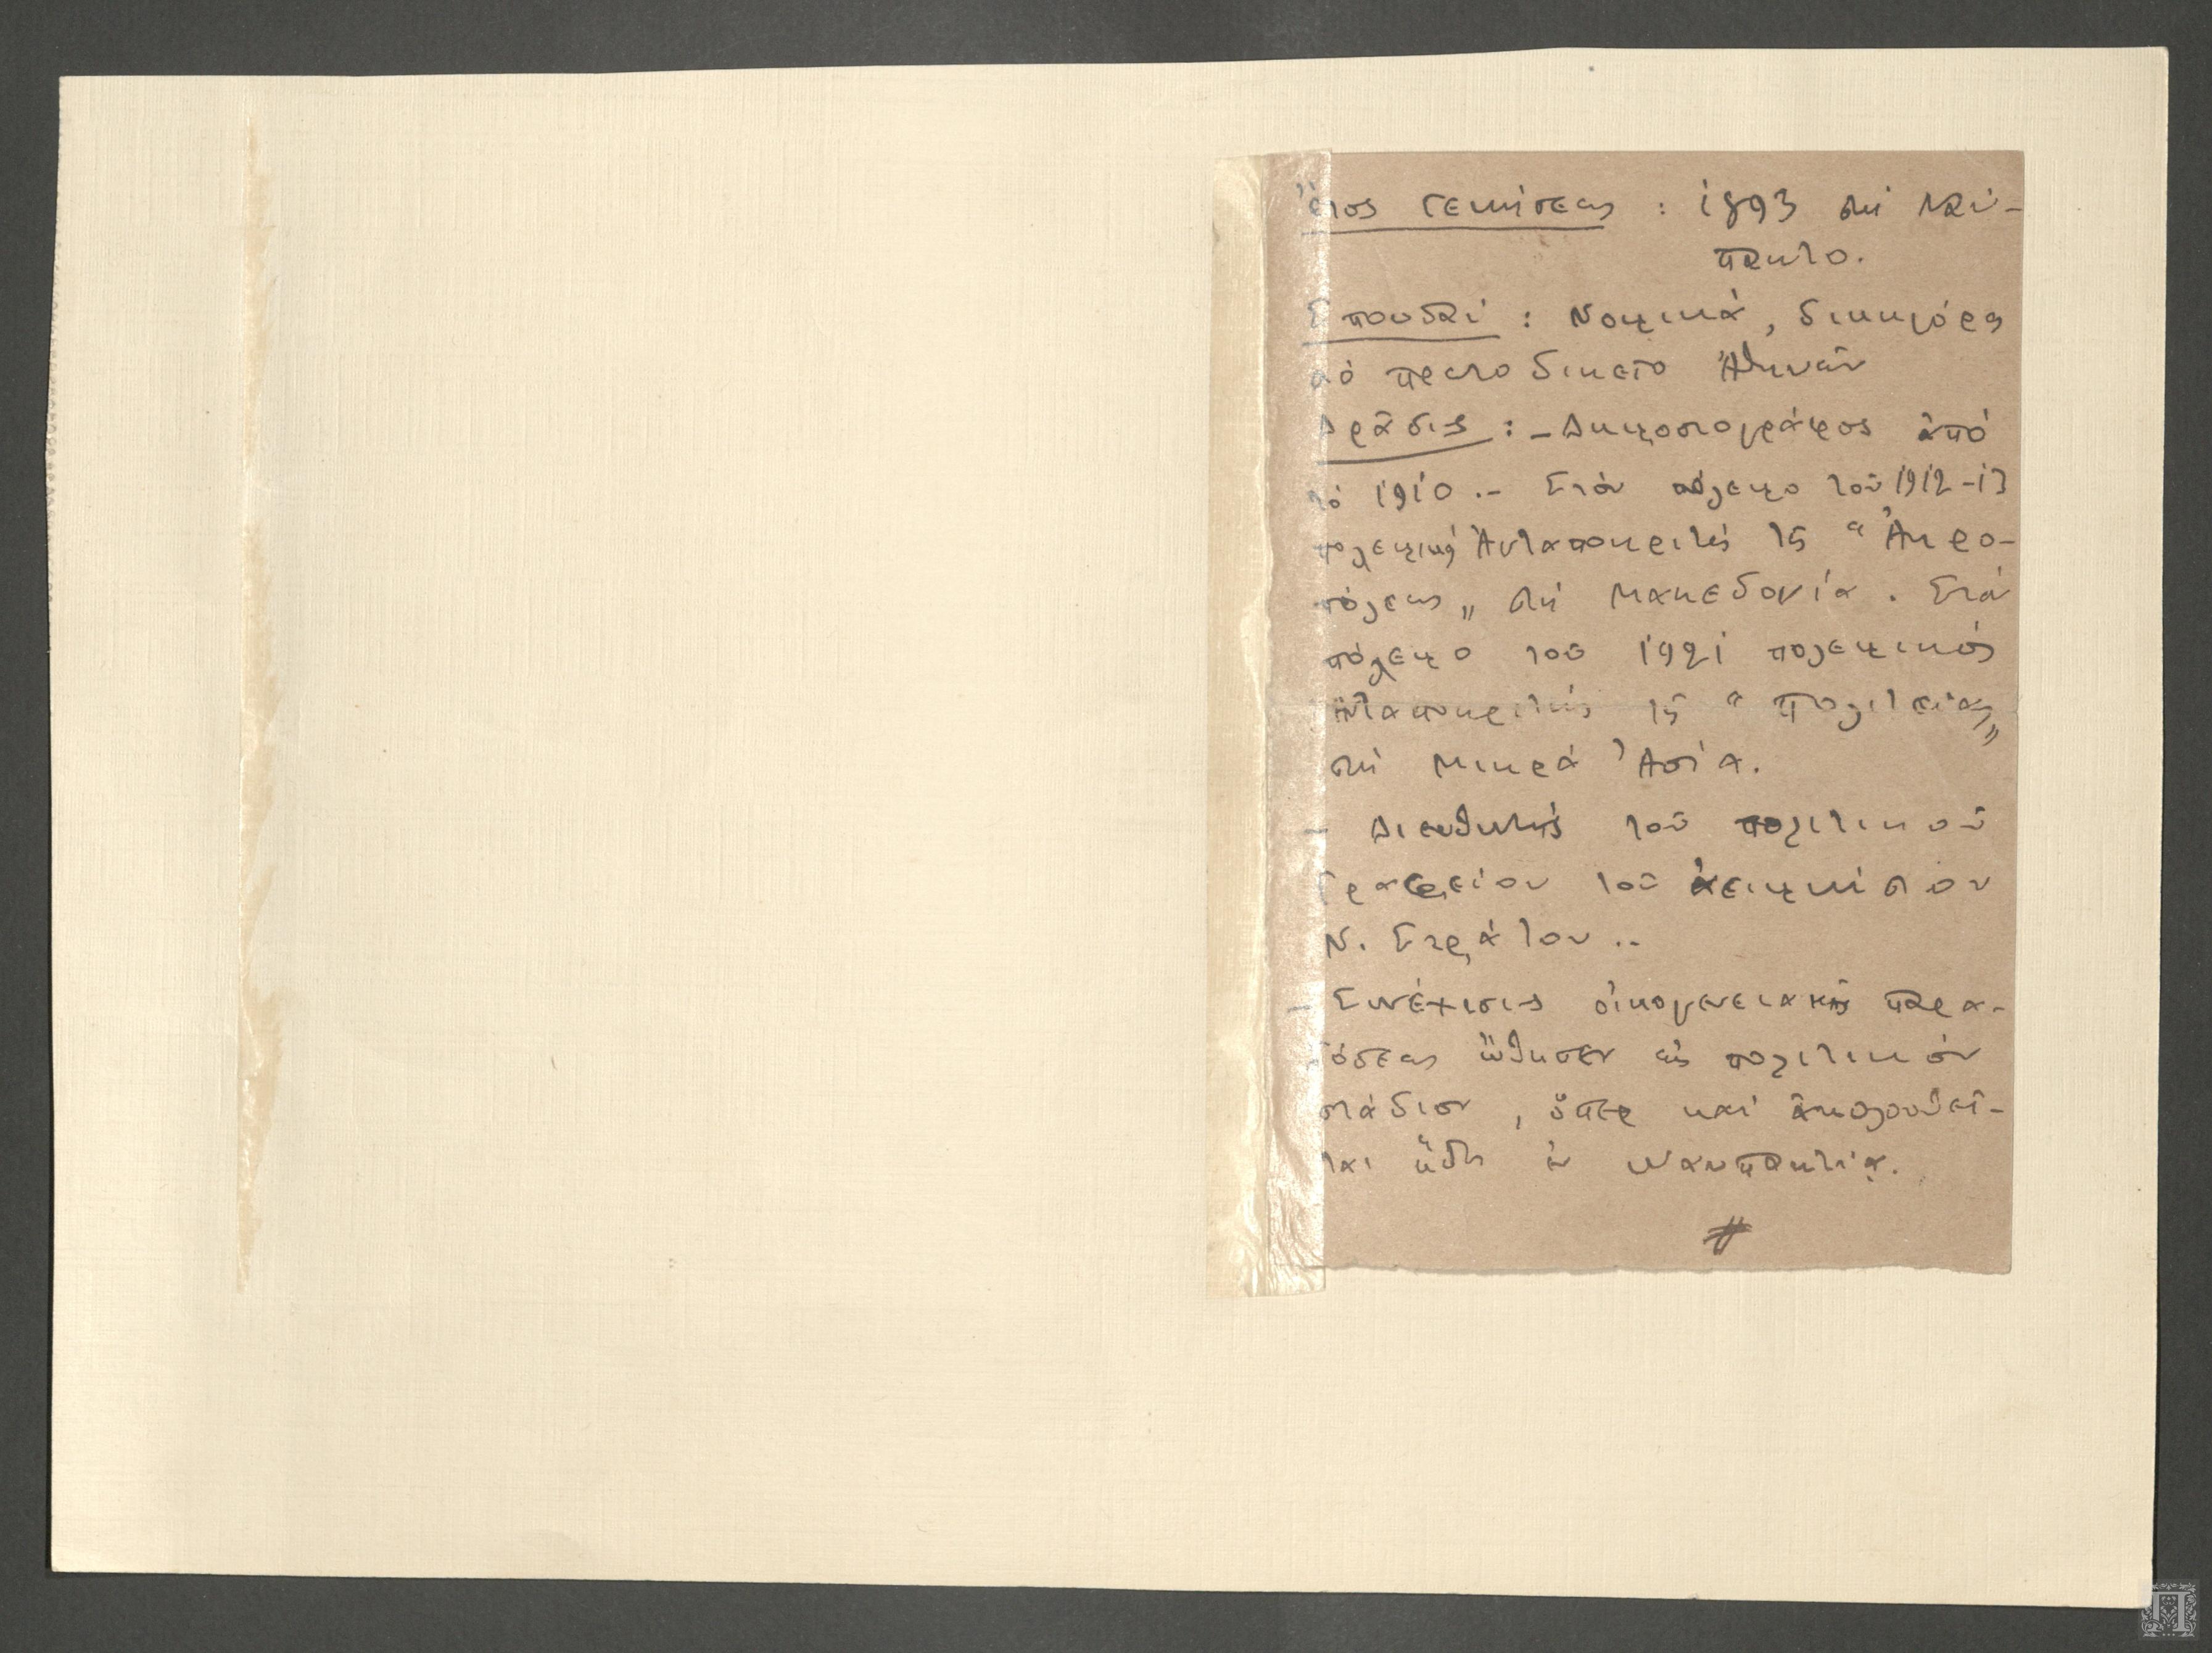 Ἔτος Γεννήσεως : 1893 στὴ Ναύ-
πακτο.
Σπουδαί : Νομικά, δικηγόρος
στὸ πρωτοδικεῖο Ἀθηνῶν
Δρᾶσις : - Δημοσιογράφος ἀπὸ
τὸ 1910 .- Στὸν πόλεμο τοῦ 1912-13
πολεμικὸς Ἀνταποκριτὴς τῆς “ Ἀκρο-
πόλεως „ στὴ Μακεδονία . Στὸν
πόλεμο τοῦ 1921 πολεμικὸς
Ἀνταποκριτὴς τῆς “ Πολιτείας „
στὴ Μικρὰ Ἀσία.
- Διευθυντὴς τοῦ πολιτικοῦ
Γραφείου τοῦ ἀειμνήστου
Ν. Στράτου ..
- Συνέχισις οἰκογενειακῆς παρα-
δόσεως ὤθησεν εἰς πολιτικὸν
στάδιον , ὅπερ καὶ ἀκολουθεῖ-
ται ἤδη ἐν Ναυπακτίᾳ.
#